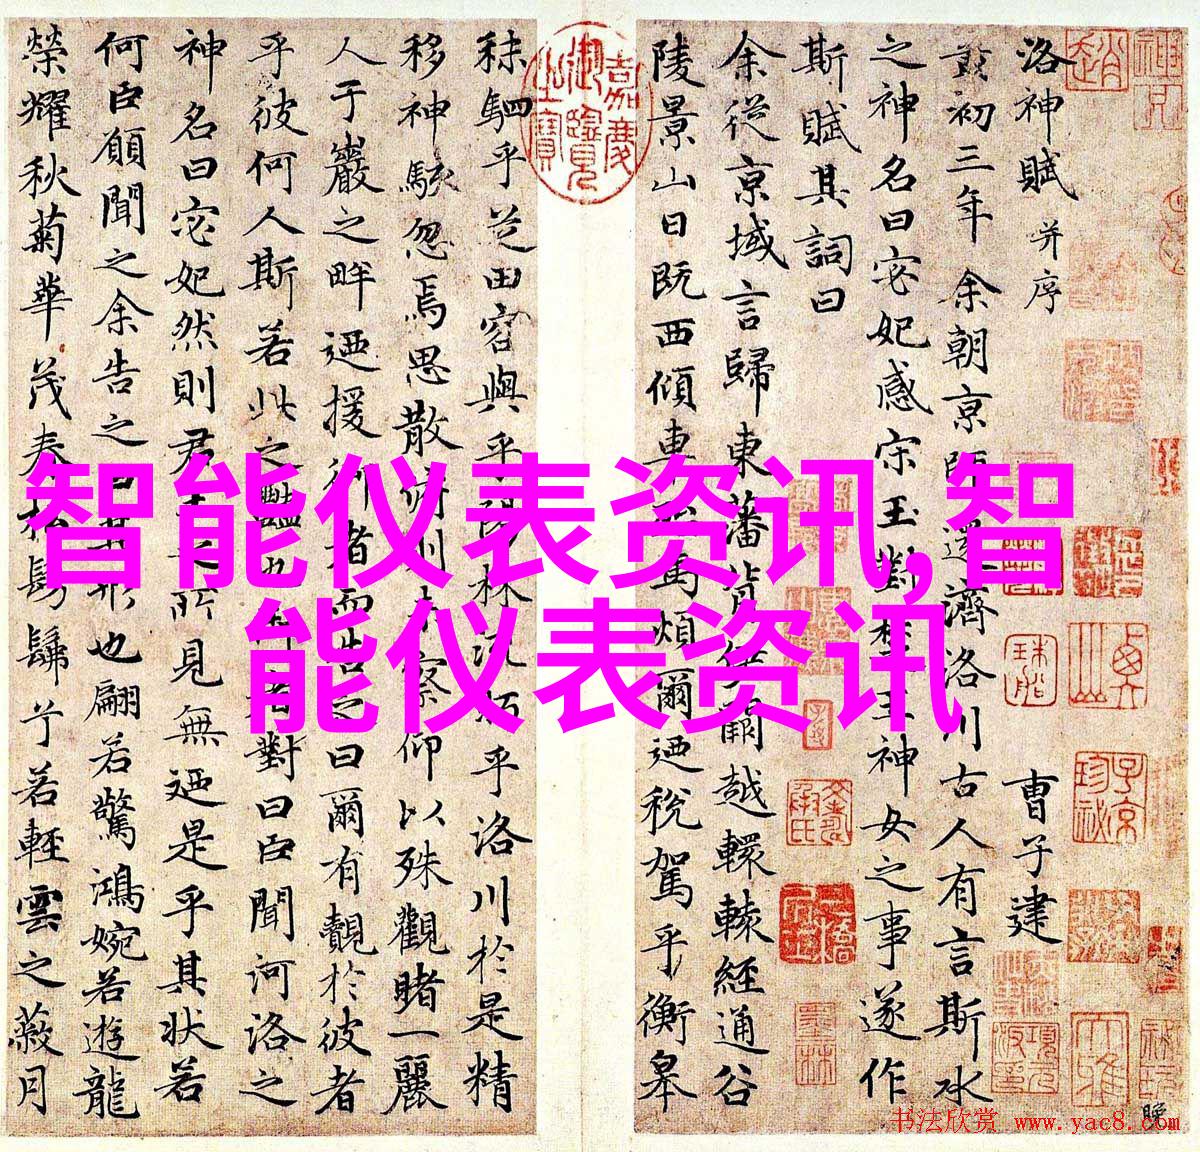 洛神賦 并序 曹子建
黃初三年余朝京師還濟洛川古人有言斯水
之神名曰宓妃感宋玉對楚王神女之事遂作
斯賦其詞曰
余從京域言歸東藩背伊闕越轘轅經通谷
陵景山日既西傾車殆馬煩爾迺稅駕乎衡皋
秣駟乎芝田容與乎陽林流眄乎洛川於是精
移神駭忽焉思散俯則未察仰以殊觀睹一麗
人于巖之畔迺援御者而告之曰爾有覿於彼者
乎彼何人斯若此之豔也御者對曰臣聞河洛之
神名曰宓妃然則君王之所見無迺是乎其狀若
何臣願聞之余告之曰其形也翩若驚鴻婉若遊龍
榮耀秋菊華茂春松髣髴兮若輕雲之蔽月
嘉慶御覽之寶
智能仪表资讯,智
能仪表资讯
书法欣赏 www.yac8.com